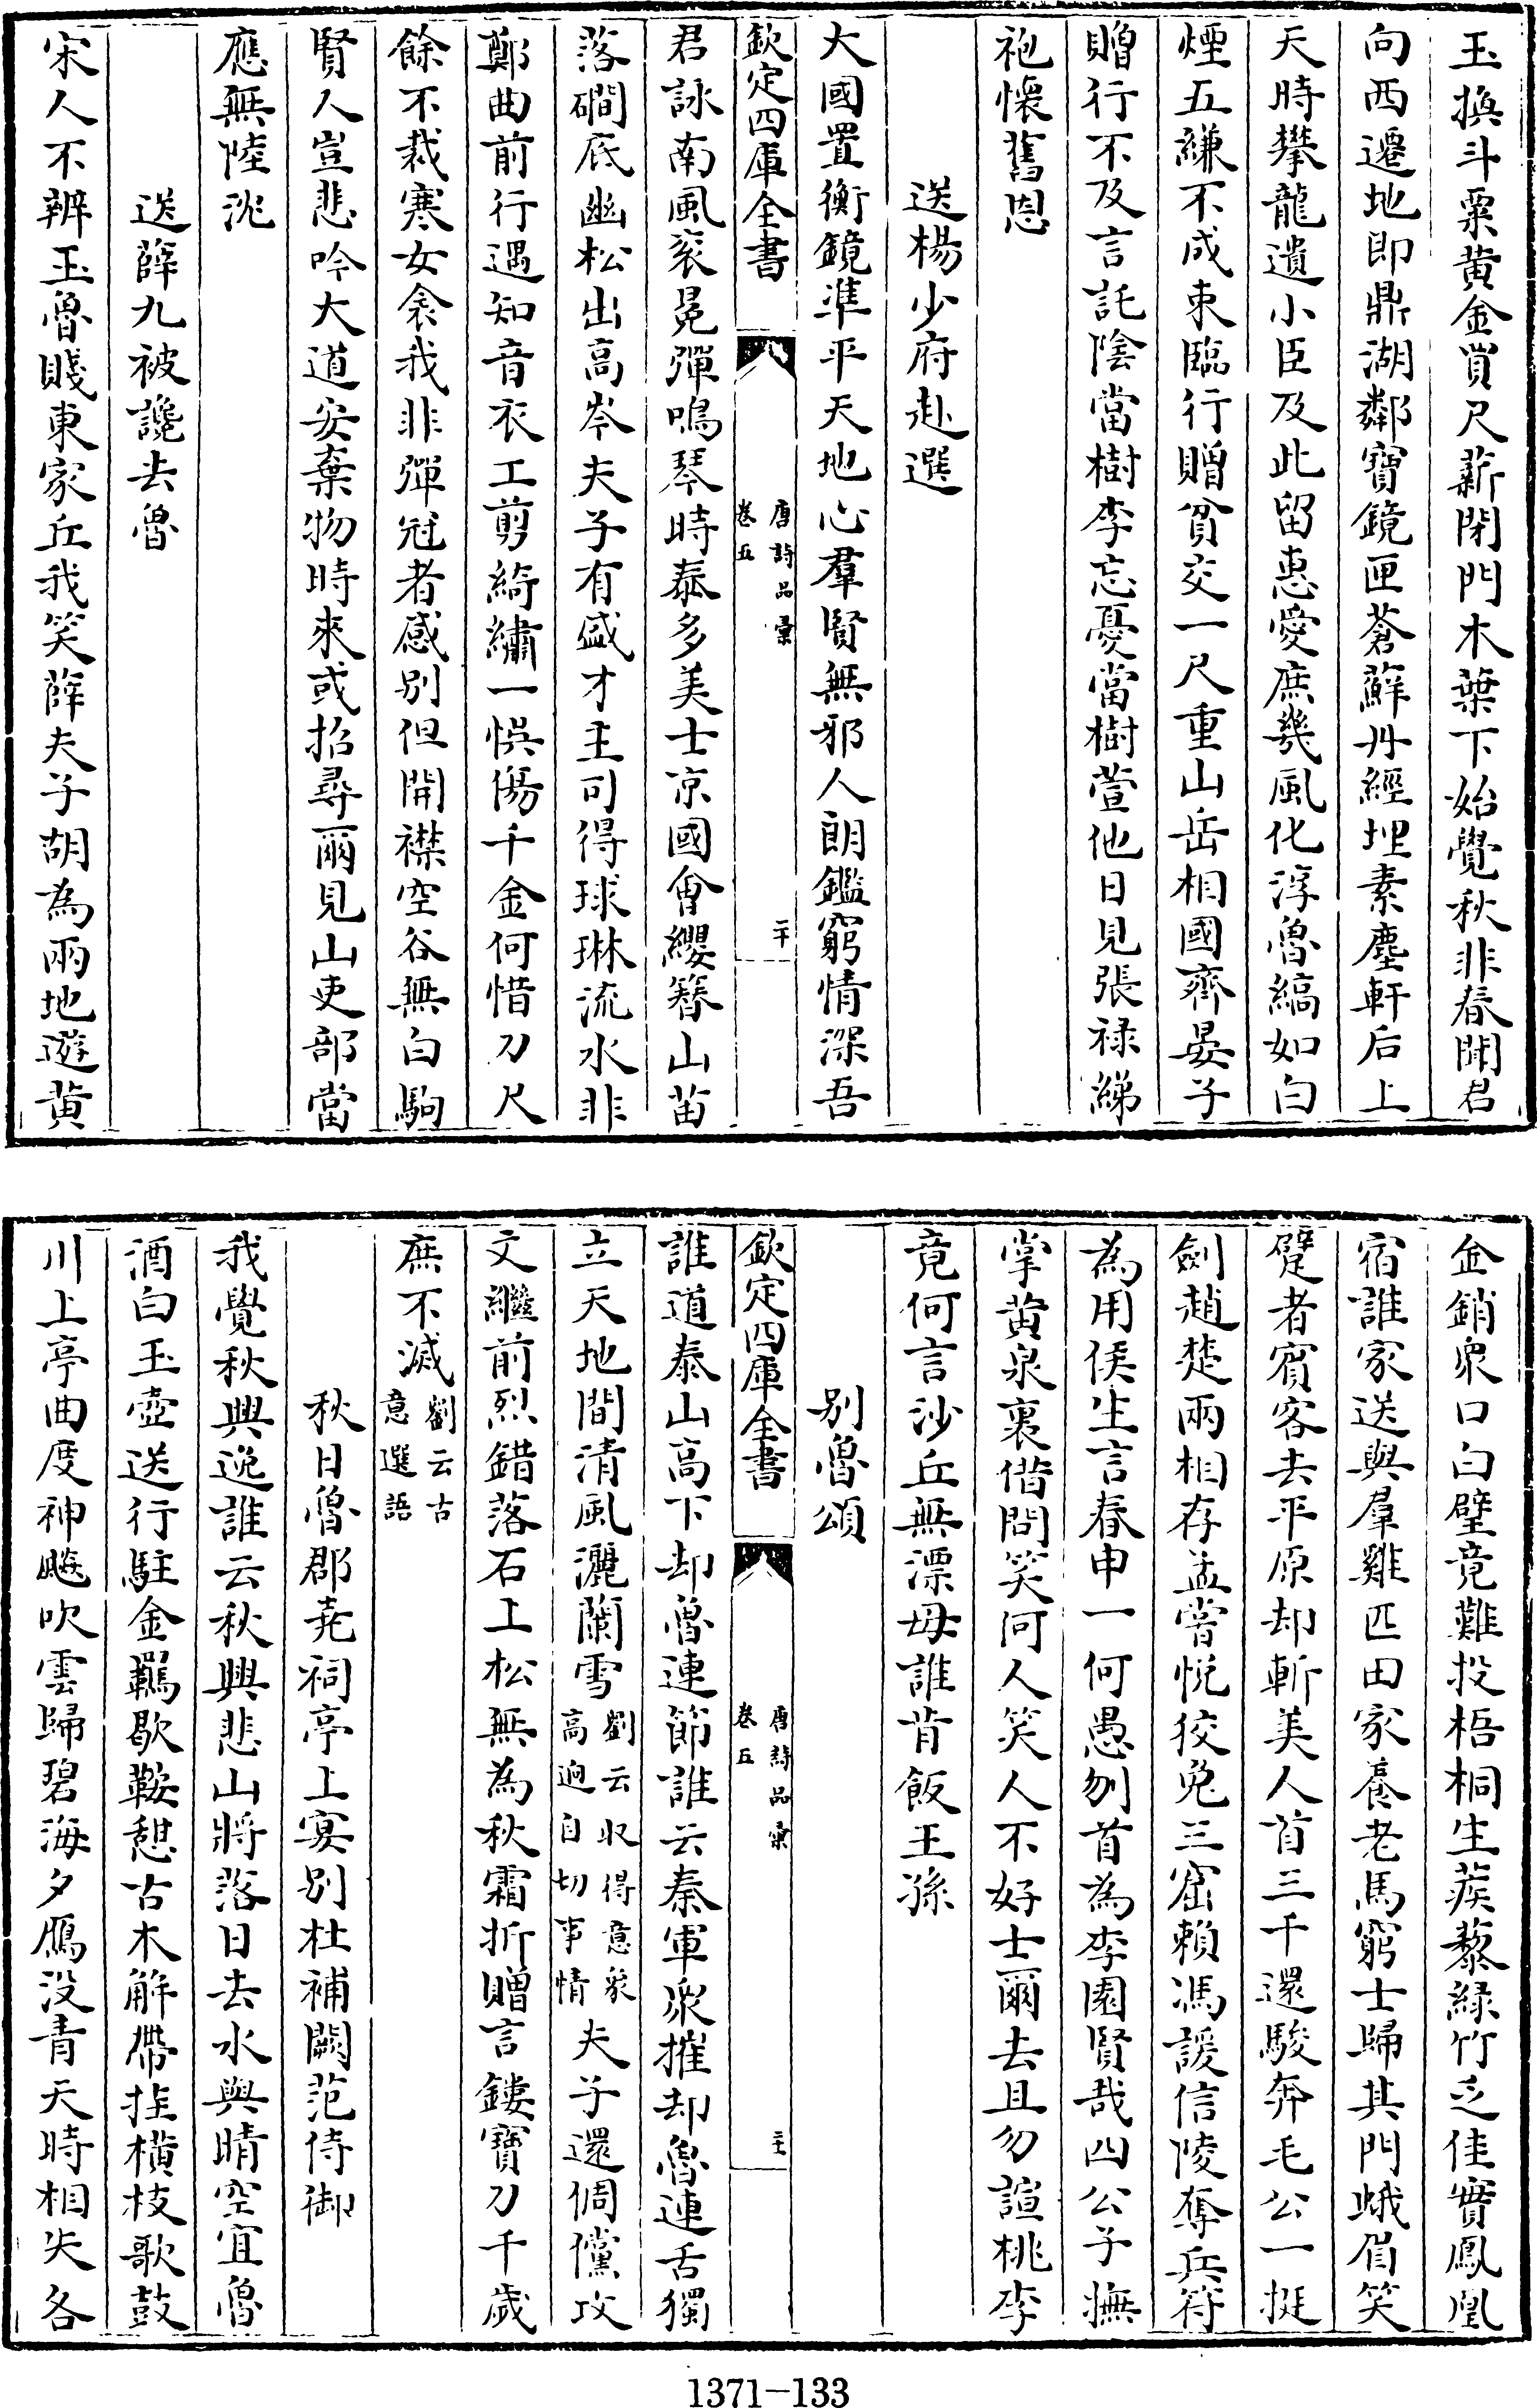 玉換斗粟黄金買尺薪閉門木葉下始覺秋非春聞君
向西遷地即鼎湖鄰寳鏡匣蒼蘚丹經埋素塵軒后上
天時攀龍遺小臣及此留惠愛庶幾風化淳魯縞如白
煙五縑不成束臨行贈貧交一尺重山岳相國齊晏子
贈行不及言託陰當樹李忘憂當樹萱他日見張禄綈
袍懷舊恩
送楊少府赴選
大國置衡鏡凖平天地心羣賢無邪人朗鑑窮情深吾
欽定四庫全書
唐詩品彙
卷五
二十
君詠南風衮冕彈鳴琴時泰多美士京國㑹纓簪山苗
落磵底幽松出高岑夫子有盛才主司得球琳流水非
鄭曲前行遇知音衣工剪綺繡一悞傷千金何惜刀尺
餘不裁寒女衾我非彈冠者感别但開襟空谷無白駒
賢人豈悲吟大道安棄物時來或招尋爾見山吏部當
應無陸沈
送薛九被讒去魯
宋人不辨玉魯賤東家丘我笑薛夫子胡為兩地遊黄
金銷衆口白璧竟難投梧桐生蒺藜緑竹乏佳實鳳凰
宿誰家送與羣雞匹田家養老馬窮士歸其門蛾眉笑
躄者賓客去平原却斬美人首三千還駿奔毛公一挺
劍趙楚兩相存孟嘗悦狡兎三窟賴馮諼信陵奪兵符
為用侯生言春申一何愚刎首為李園賢哉四公子撫
掌黄泉裏借問笑何人笑人不好士爾去且勿諠桃李
竟何言沙丘無漂母誰肯飯王孫
别魯頌
欽定四庫全書
唐詩品彙
卷五
二十一
誰道泰山高下却魯連節誰云秦軍衆摧却魯連舌獨
立天地間清風灑蘭雪劉云収得意象高迥自切事情夫子還倜儻攻
文繼前烈錯落石上松無為秋霜折贈言鏤寳刀千歲
庶不滅劉云古意選語
秋日魯郡堯祠亭上宴别杜補闕范侍御
我覺秋興逸誰云秋興悲山將落日去水與晴空宜魯
酒白玉壺送行駐金羈歇鞍憩古木解帶挂横枝歌鼓
川上亭曲度神飈吹雲歸碧海夕鴈没青天時相失各
1371-133